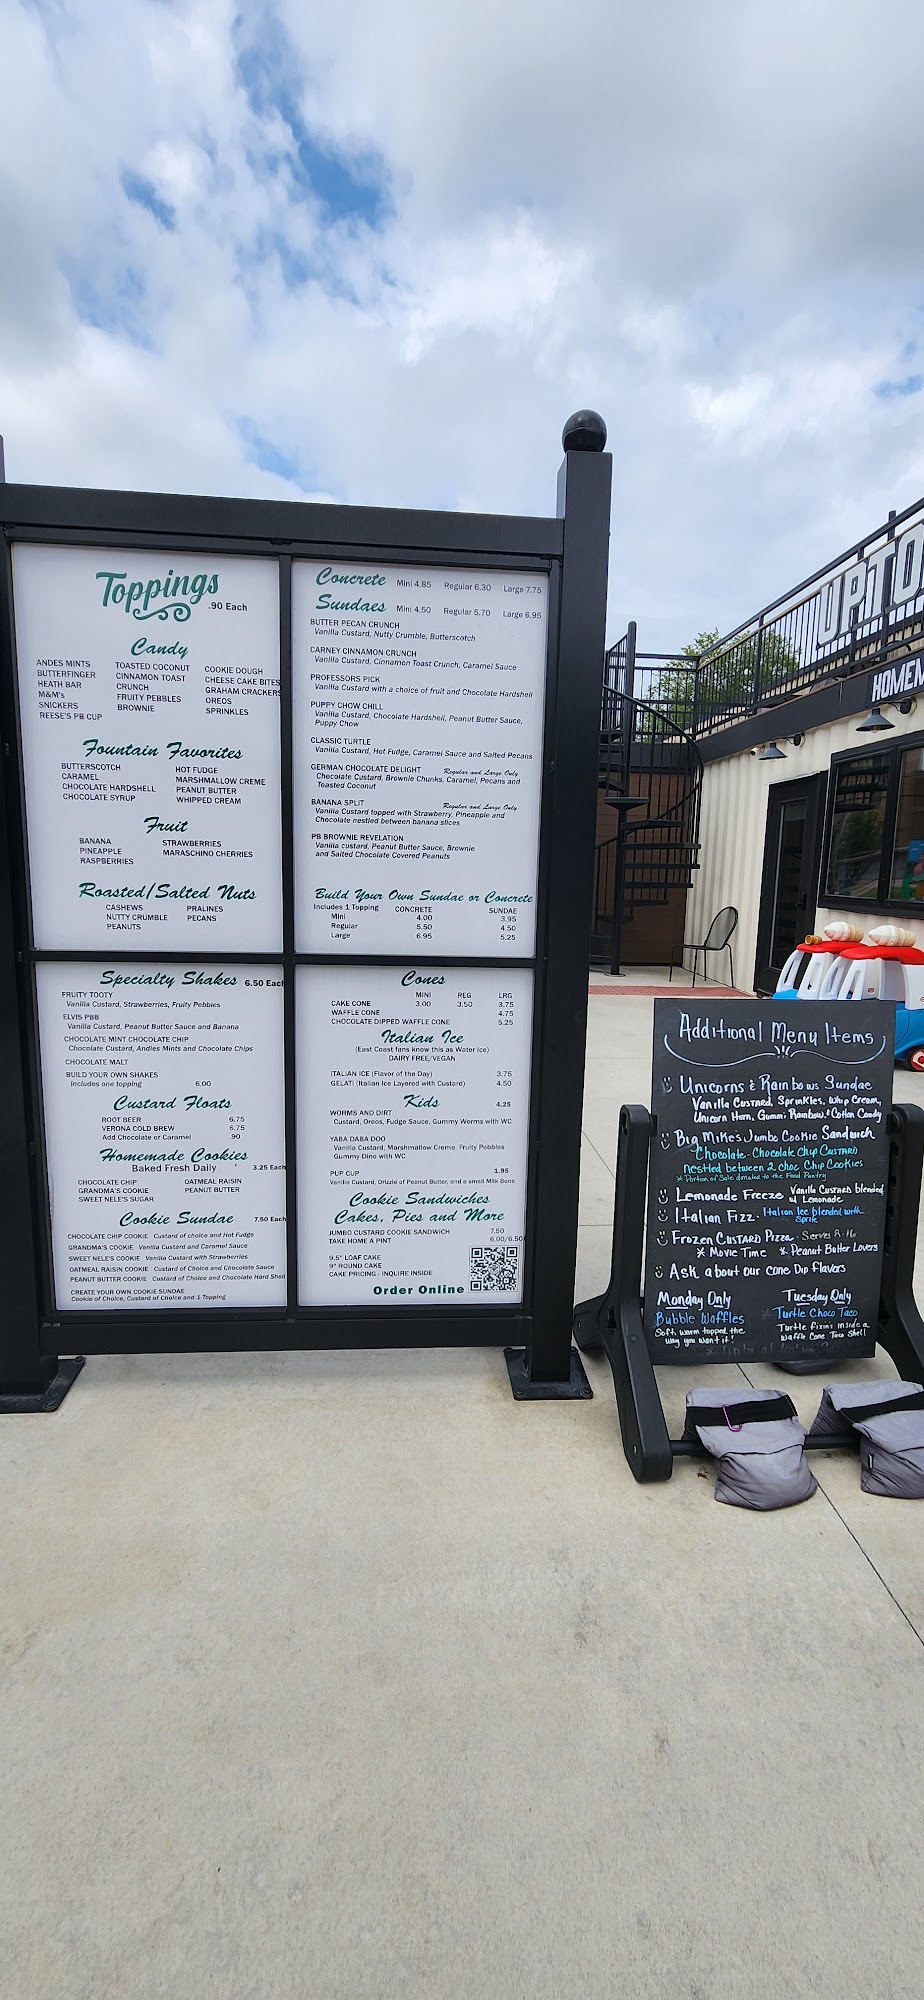 Toppings
.90 Each
Candy
ANDES MINTS
BUTTERFINGER
HEATH BAR
M&M's
SNICKERS
REESE'S PB CUP
TOASTED COCONUT
CINNAMON TOAST
CRUNCH
FRUITY PEBBLES
BROWNIE
COOKIE DOUGH
CHEESE CAKE BITES
GRAHAM CRACKERS
OREOS
SPRINKLES
Fountain Favorites
BUTTERSCOTCH
CARAMEL
CHOCOLATE HARDSHELL
CHOCOLATE SYRUP
HOT FUDGE
MARSHMALLOW CREME
PEANUT BUTTER
WHIPPED CREAM
Fruit
BANANA
PINEAPPLE
RASPBERRIES
STRAWBERRIES
MARASCHINO CHERRIES
Roasted/Salted Nuts
CASHEWS
NUTTY CRUMBLE
PEANUTS
PRALINES
PECANS
Concrete Mini 4.85 Regular 6.30 Large 7.75
Sundaes Mini 4.50 Regular 5.70 Large 6.95
BUTTER PECAN CRUNCH
Vanilla Custard, Nutty Crumble, Butterscotch
CARNEY CINNAMON CRUNCH
Vanilla Custard, Cinnamon Toast Crunch, Caramel Sauce
PROFESSORS PICK
Vanilla Custard with a choice of fruit and Chocolate Hardshell
PUPPY CHOW CHILL
Vanilla Custard, Chocolate Hardshell, Peanut Butter Sauce,
Puppy Chow
CLASSIC TURTLE
Vanilla Custard, Hot Fudge, Caramel Sauce and Salted Pecans
GERMAN CHOCOLATE DELIGHT Regular and Large Only
Chocolate Custard, Brownie Chunks, Caramel, Pecans and
Toasted Coconut
BANANA SPLIT Regular and Large Only
Vanilla Custard topped with Strawberry, Pineapple and
Chocolate nestled between banana slices
PB BROWNIE REVELATION
Vanilla custard, Peanut Butter Sauce, Brownie
and Salted Chocolate Covered Peanuts
Build Your Own Sundae or Concrete
Includes 1 Topping CONCRETE SUNDAE
Mini 4.00 3.95
Regular 5.50 4.50
Large 6.95 5.25
Specialty Shakes 6.50 Each
FRUITY TOOTY
Vanilla Custard, Strawberries, Fruity Pebbles
ELVIS PBB
Vanilla Custard, Peanut Butter Sauce and Banana
CHOCOLATE MINT CHOCOLATE CHIP
Chocolate Custard, Andies Mints and Chocolate Chips
CHOCOLATE MALT
BUILD YOUR OWN SHAKES
Includes one topping 6.00
Custard Floats
ROOT BEER 6.75
VERONA COLD BREW 6.75
Add Chocolate or Caramel .90
Homemade Cookies
Baked Fresh Daily 3.25 Each
CHOCOLATE CHIP
GRANDMA'S COOKIE
SWEET NELE'S SUGAR
OATMEAL RAISIN
PEANUT BUTTER
Cookie Sundae 7.50 Each
CHOCOLATE CHIP COOKIE Custard of choice and Hot Fudge
GRANDMA'S COOKIE Vanilla Custard and Caramel Sauce
SWEET NELE'S COOKIE Vanilla Custard with Strawberries
OATMEAL RAISIN COOKIE Custard of Choice and Chocolate Sauce
PEANUT BUTTER COOKIE Custard of Choice and Chocolate Hard Shell
CREATE YOUR OWN COOKIE SUNDAE
Cookie of Choice, Custard of Choice and 1 Topping
Cones
MINI REG LRG
CAKE CONE 3.00 3.50 3.75
WAFFLE CONE 4.75
CHOCOLATE DIPPED WAFFLE CONE 5.25
Italian Ice
(East Coast fans know this as Water Ice)
DAIRY FREE/VEGAN
ITALIAN ICE (Flavor of the Day) 3.75
GELATI (Italian Ice Layered with Custard) 4.50
Kids 4.25
WORMS AND DIRT
Custard, Oreos, Fudge Sauce, Gummy Worms with WC
YABA DABA DOO
Vanilla Custard, Marshmallow Creme, Fruity Pebbles
Gummy Dino with WC
PUP CUP 1.95
Vanilla Custard, Drizzle of Peanut Butter, and a small Milk Bone
Cookie Sandwiches
Cakes, Pies and More
JUMBO CUSTARD COOKIE SANDWICH 7.50
TAKE HOME A PINT 6.00/6.50
9.5" LOAF CAKE
9" ROUND CAKE
CAKE PRICING - INQUIRE INSIDE
Order Online
UPTO
HOMEM
Additional Menu Items
Unicorns & Rainbows Sundae
Vanilla Custard, Sprinkles, Whip Cream,
Unicorn Horn, Gummi Rainbow & Cotton Candy
Big Mikes Jumbo Cookie Sandwich
Chocolate-Chocolate Chip Custard
nestled between 2 choc Chip Cookies
* Portion of Sale donated to the Food Pantry
Lemonade Freeze Vanilla Custard blended
w/ Lemonade
Italian Fizz - Italian Ice blended with
Sprite
Frozen Custard Pizza - Serves 8-16
* Movie Time * Peanut Butter Lovers
Ask about our cone Dip flavors
Monday Only
Bubble Waffles
Soft, warm topped the
way you want it!
Tuesday Only
Turtle Choco Taco
Turtle fixins inside a
Waffle Cone Taco Shell